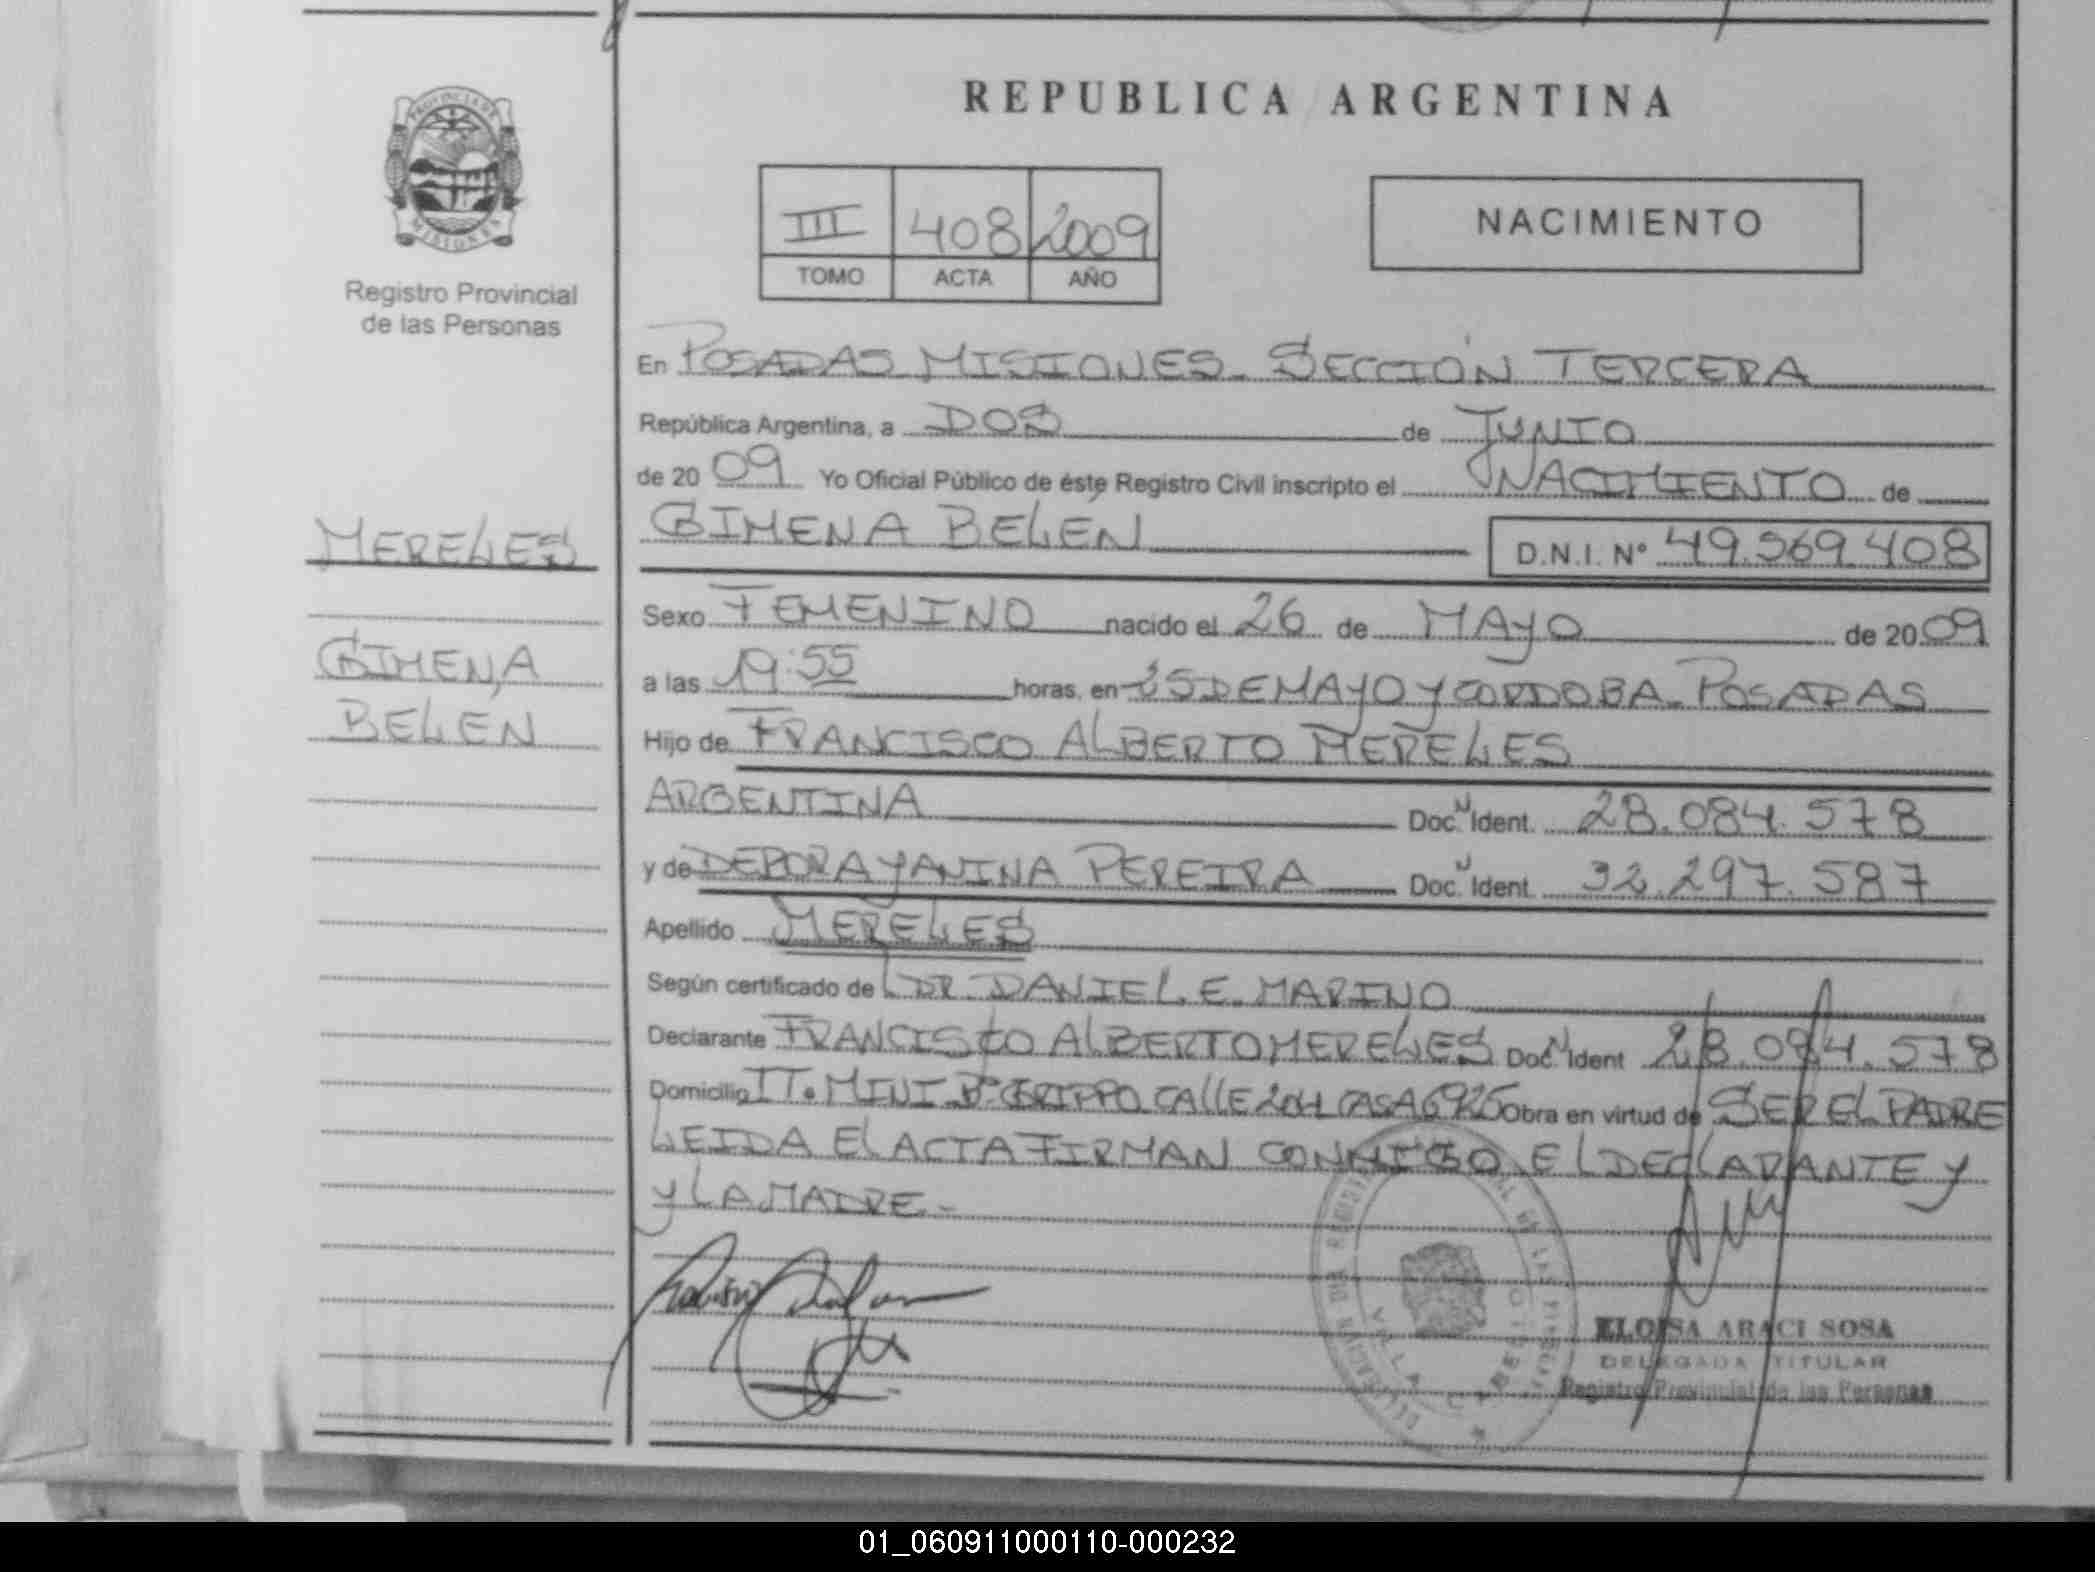 REPUBLICA ARGENTINA
PROVINCIA DE
MISIONES
Registro Provincial
de las Personas
III 408 2009
TOMO ACTA AÑO
NACIMIENTO
En POSADAS MISIONES - SECCIÓN TERCERA
República Argentina, a DOS de JUNIO
de 20 09 Yo Oficial Público de éste Registro Civil inscripto el NACIMIENTO de
GIMENA BELÉN D.N.I. Nº 49.569.408
MERELES
GIMENA
BELEN
Sexo FEMENINO nacido el 26 de MAYO de 20 09
a las 19:55 horas, en 25 DE MAYO Y CORDOBA - POSADAS
Hijo de FRANCISCO ALBERTO MERELES
ARGENTINA Doc. Ident. 28.084.578
y de DEBORA YANINA PEREIRA Doc. Ident. 32.297.587
Apellido MERELES
Según certificado de DR. DANIEL E. MARINO
Declarante FRANCISCO ALBERTO MERELES Doc. Ident 28.084.578
Domicilio IT. MINI Bº GRIPPO CALLE 204 CASA 6925 Obra en virtud de SER EL PADRE
LEIDA EL ACTA FIRMAN CONMIGO EL DECLARANTE Y
Y LA MADRE.-
VILLA CABELLO
ELOISA ARACI SOSA
DELEGADA TITULAR
Registro Provincial de las Personas
01_060911000110-000232